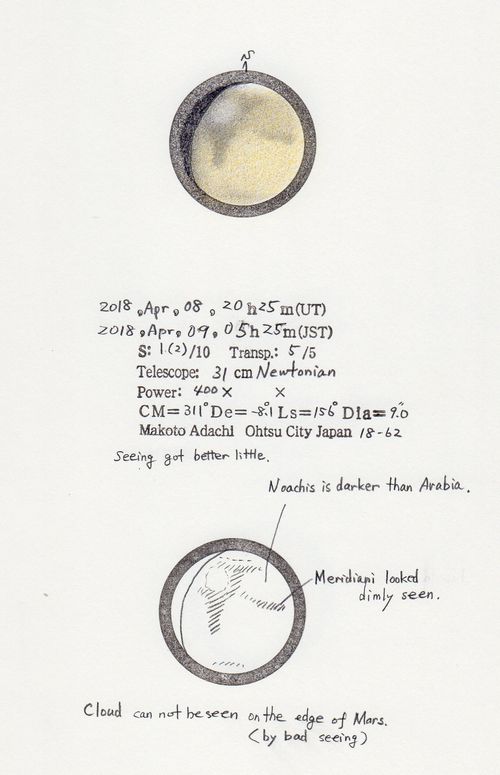 S
2018, Apr, 08, 20h25m(UT)
2018, Apr, 09, 05h25m(JST)
S: 1(2)/10 Transp.: 5/5
Telescope: 31 cm Newtonian
Power: 400× ×
CM=311° De=-8.1° Ls=156° Dia=9.0"
Makoto Adachi Ohtsu City Japan 18-62
Seeing got better little.
Noachis is darker than Arabia.
Meridiani looked
dimly seen.
Cloud can not be seen on the edge of Mars.
(by bad seeing)